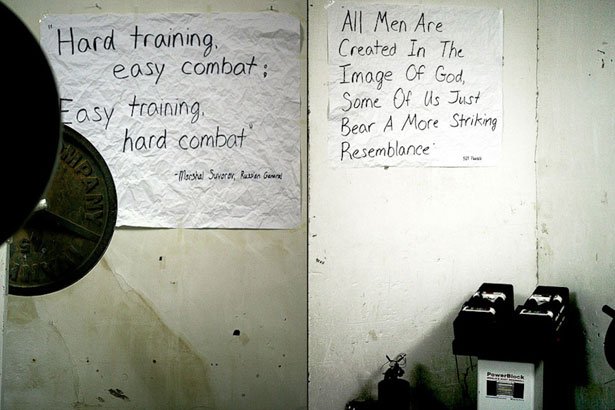 "Hard training,
easy combat;
Easy training,
hard combat"
-Marshal Suvorov, Russian General
All Men Are
Created In The
Image Of God,
Some Of Us Just
Bear A More Striking
Resemblance
COMPANY
PowerBlock